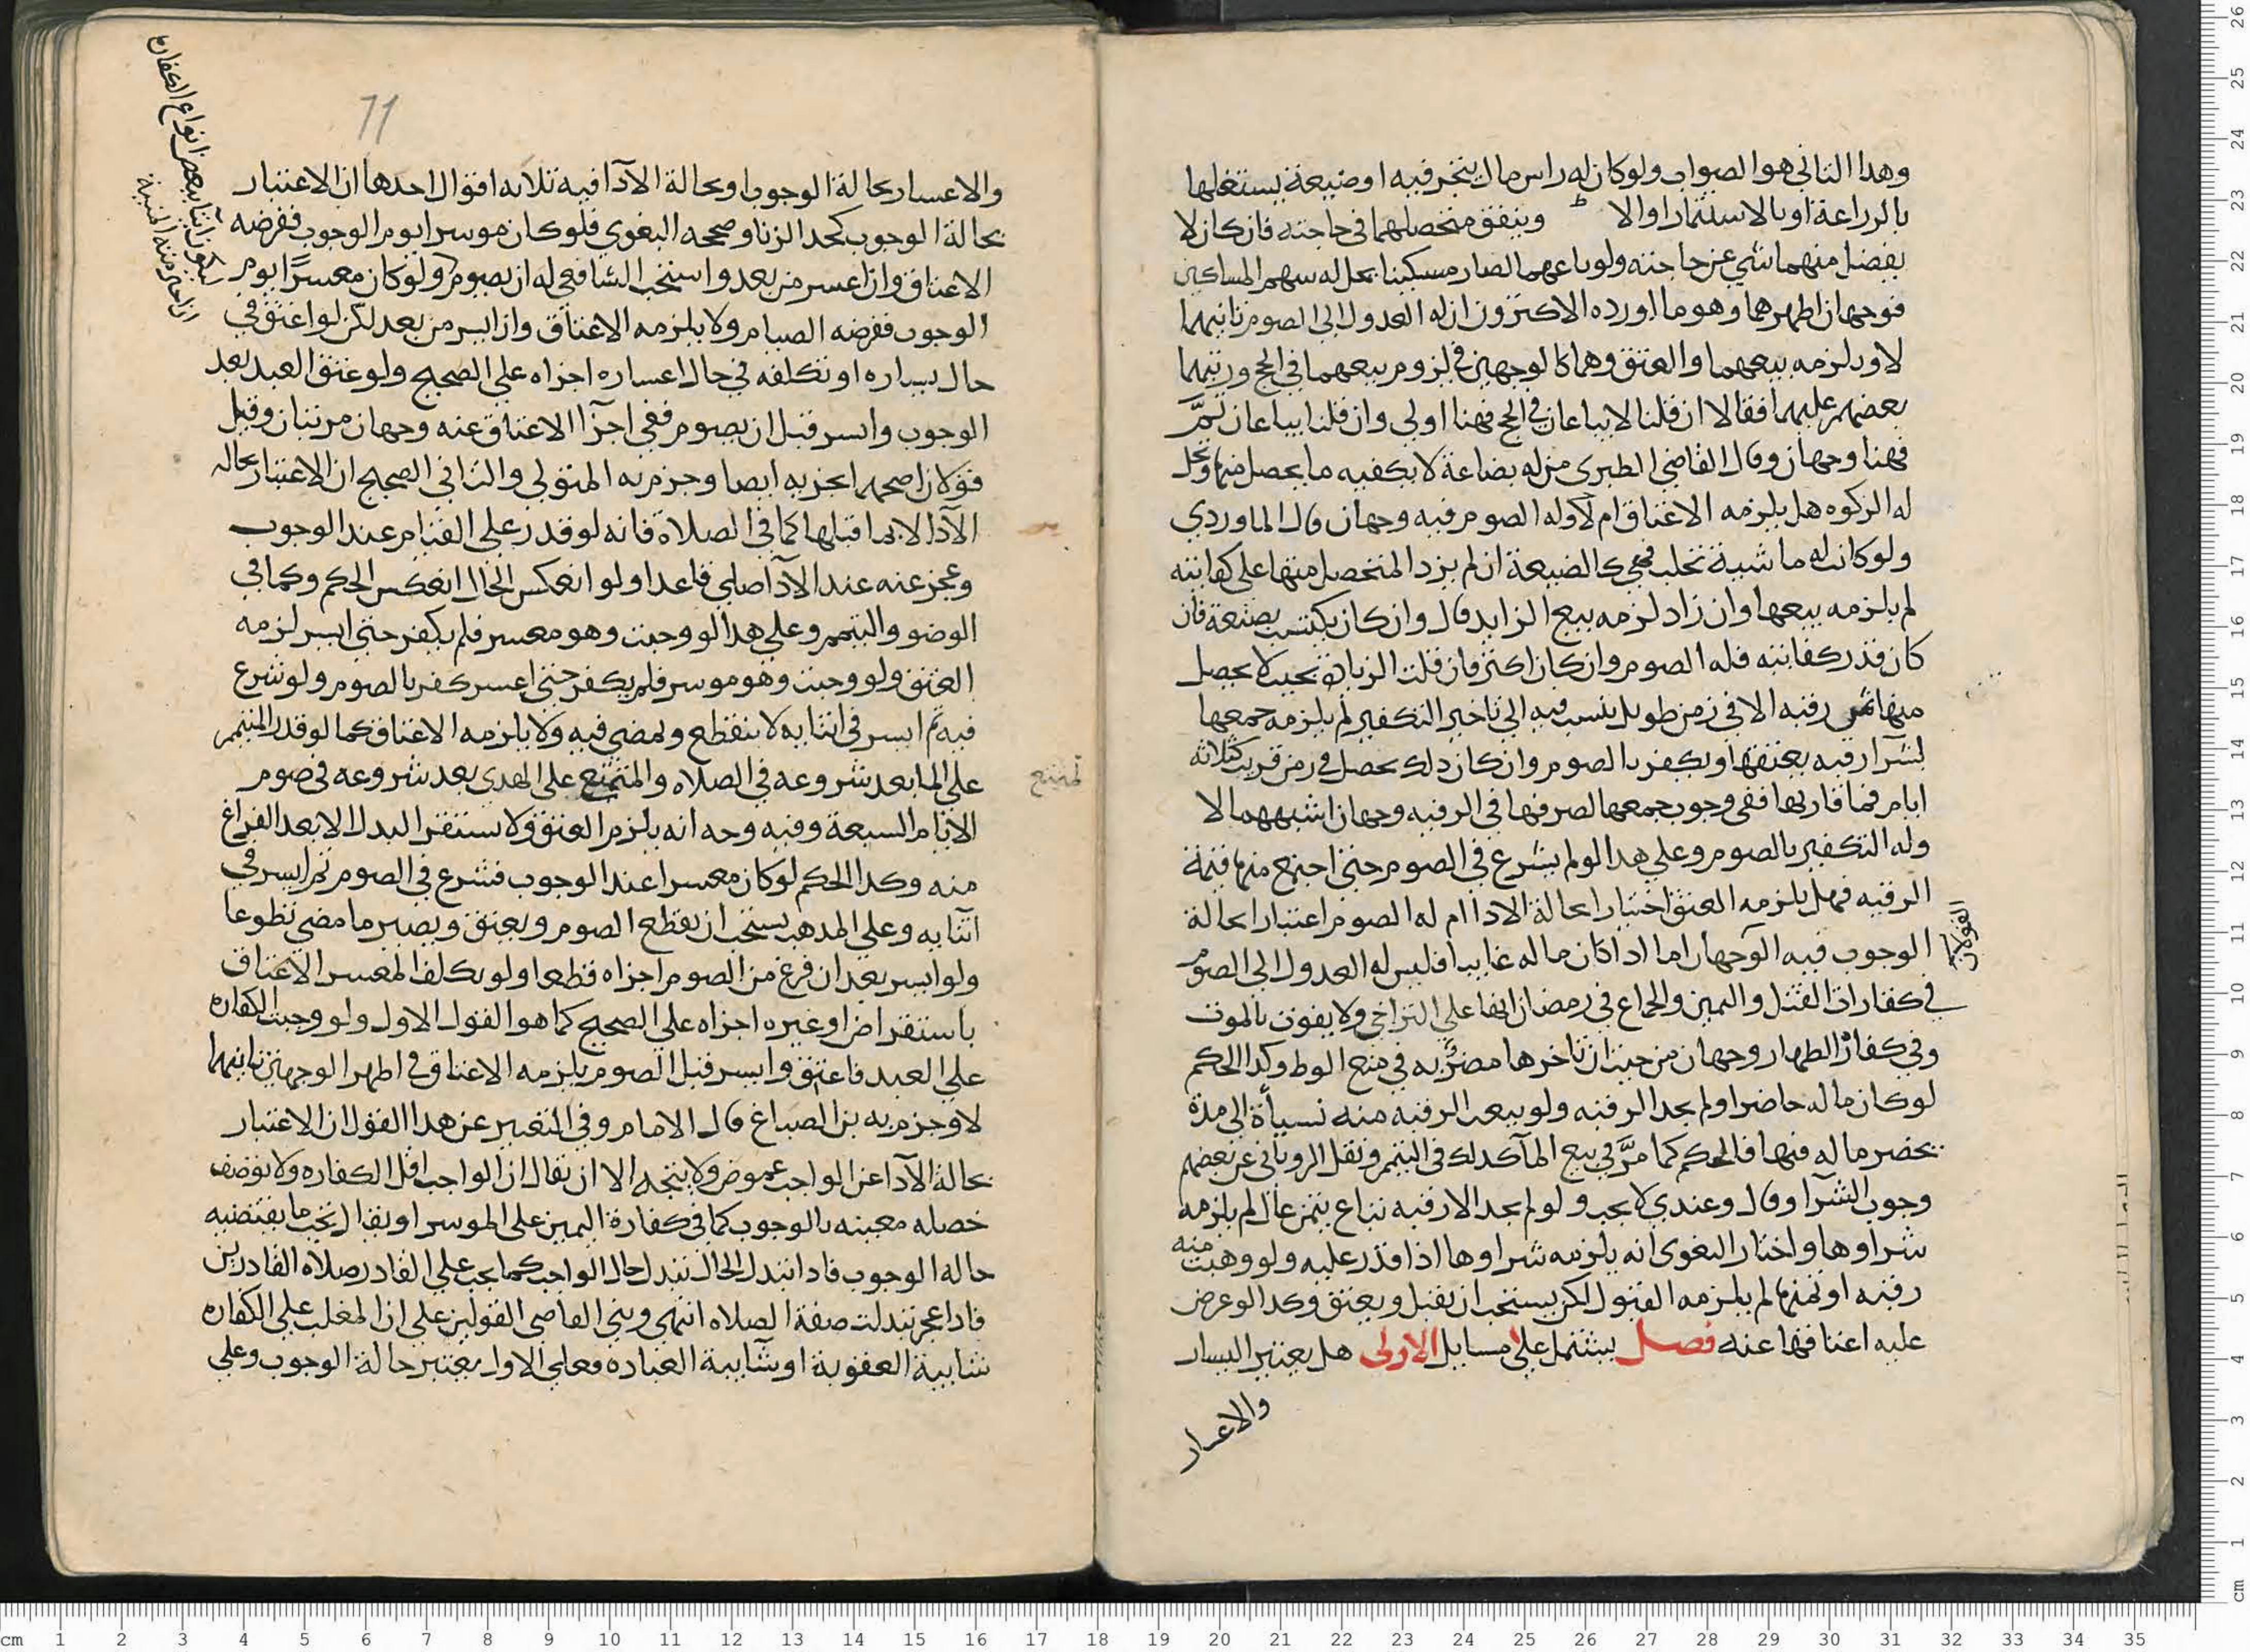 وهدا الثانى هو الصواب ولو كان له راس مال يتجر فيه او ضيعة يستغلها
بالزراعة او بالاستثمار اولا وينفق متحصلهما فى حاجته فان كان لا
يفضل منهما شي عن حاجته ولو باعهما لصار مسكينا يحل له سهم المساكين
فوجهان اظهرهما وهو ما اورده الاكثرون ان له العدول الى الصوم ثانيهما
لا ويلزمه بيعهما والعتق وهما كالوجهين فى لزوم بيعهما فى الحج ورتبهما
بعضهم عليهما فقالا ان قلنا لا يباعان فى الحج فهنا اولى وان قلنا يباعان ثمَّ
فهنا وجهان وقال القاضى الطبرى من له بضاعة لا يكفيه ما يحصل منها وتحل
له الزكوه هل يلزمه الاعتاق ام لا وله الصوم فيه وجهان قال الماوردي
ولو كانت له ماشية تحلب فهي كالضيعة ان لم يزد المتحصل منها على كفايته
لم يلزمه بيعها وان زاد لزمه بيع الزايد قال وان كان يكتسب بصنعة فان
كان قدر كفايته فله الصوم وان كان اكثر فان قلت الزيادة بحيث لا يحصل
منها ثمن رقبه الا فى زمن طويل ينسب فيه الى تاخير التكفير لم يلزمه جمعها
لشرآ رقبه يعتقها ويكفر بالصوم وان كان دلك يحصل فى زمن قريب كثلاثه
ايام فما قاربها ففى وجوب جمعها لصرفها فى الرقبه وجهان اشبههما لا
وله التكفير بالصوم وعلى هدا لو لم يشرع فى الصوم حتى اجتمع منها قيمة
الرقبه فهل يلزمه العتق اعتبارا بحالة الادا ام له الصوم اعتبارا بحالة
الوجوب فيه الوجهان اما ادا كان ماله غايبا فليس له العدول الى الصوم
القولان
في كفارات القتل واليمين والجماع فى رمضان انها على التراخي ولا يفوت بالموت
وفي كفارة الظهار وجهان من حيث ان تاخرها مضرٌّ به فى منع الوط وكدا الحكم
لو كان ماله حاضرا ولم يجد الرقبه ولو بيعت الرقبه منه نسيأة الى مدة
يحضر ماله فيها فالحكم كما مرَّ في بيع المآ كدلك فى التيمم ونقل الرويانى عن بعضهم
وجوب الشرآ وقال وعندي لا يجب ولو لم يجد الا رقبه تباع بثمن غال لم يلزمه
شراوها واختار البغوى انه يلزمه شراوها اذا قدر عليه ولو وهبت منه
رقبه او ثمنها لم يلزمه القبول لكن يستحب ان يقبل ويعتق وكدا لو عرض
عليه اعتاقها عنه فصل يشتمل على مسايل الاولى هل يعتبر اليسار
والاعسار
71
والاعسار بحالة الوجوب او بحالة الآدا فيه ثلاثه اقوال احدها ان الاعتبار
بحالة الوجوب كحد الزنا وصححه البغوي فلو كان موسرا يوم الوجوب ففرضه
الاعتاق وان اعسر من بعد واستحب الشافعي له ان يصوم ولو كان معسرًا يوم
الوجوب ففرضه الصيام ولا يلزمه الاعتاق وان ايسر من بعد لكن لو اعتق في
حال يساره او تكلفه في حال اعساره اجزاه على الصحيح ولو عتق العبد بعد
الوجوب وايسر قبل ان يصوم ففى اجزآ الاعتاق عنه وجهان مرتبان وقيل
قولان اصحهما يجزيه ايضا وجزم به المتولي والثانى الصحيح ان الاعتبار بحاله
الآدا لا بما قبلها كما فى الصلاة فانه لو قدر على القيام عند الوجوب
وعجز عنه عند الآدا صلى قاعدا ولو انعكس الحال انعكس الحكم وكما في
الوضو والتيمم وعلى هدا لو وجبت وهو معسر فلم يكفر حتى ايسر لزمه
العتق ولو وجبت وهو موسر فلم يكفر حتى اعسر كفر بالصوم ولو شرع
فيه ثم ايسر فى اثنايه لا ينقطع ويمضى فيه ولا يلزمه الاعتاق كما لو قدر المتيمم
على الما بعد شروعه فى الصلاه والمتمتع على الهدى بعد شروعه فى صوم
الايام السبعة وفيه وجه انه يلزم العتق ولا يستقر البدل الا بعد الفراغ
منه وكدا الحكم لو كان معسرا عند الوجوب فشرع فى الصوم ثم ايسر في
اثنايه وعلى المدهب يستحب ان يقطع الصوم ويعتق ويصير ما مضى تطوعا
ولو ايسر بعد ان فرغ من الصوم اجزاه قطعا ولو تكلف المعسر الاعتاق
باستقراض او غيره اجزاه على الصحيح كما هو القول الاول ولو وجبت الكفاره
على العبد فاعتق وايسر قبل الصوم يلزمه الاعتاق فى اظهر الوجهين ثانيهما
لا وجزم به بن الصباغ قال الامام وفى التعبير عن هدا القول ان الاعتبار
بحالة الآدا عن الواجب غموض ولا يتجه الا ان يقال ان الواجب اقل الكفاره ولا يوصف
خصله معينه بالوجوب كما فى كفارة اليمين على الموسر او يقال يجب ما يقتضيه
حاله الوجوب فادا تبدل الحال تبدل حال الواجب كما يجب على القادر صلاه القادرين
فادا عجز تبدلت صفة الصلاه انتهى وبني القاضى القولين على ان المغلب على الكفاره
شايبة العقوبة او شايبة العباده فعلى الاول يعتبر حالة الوجوب وعلي